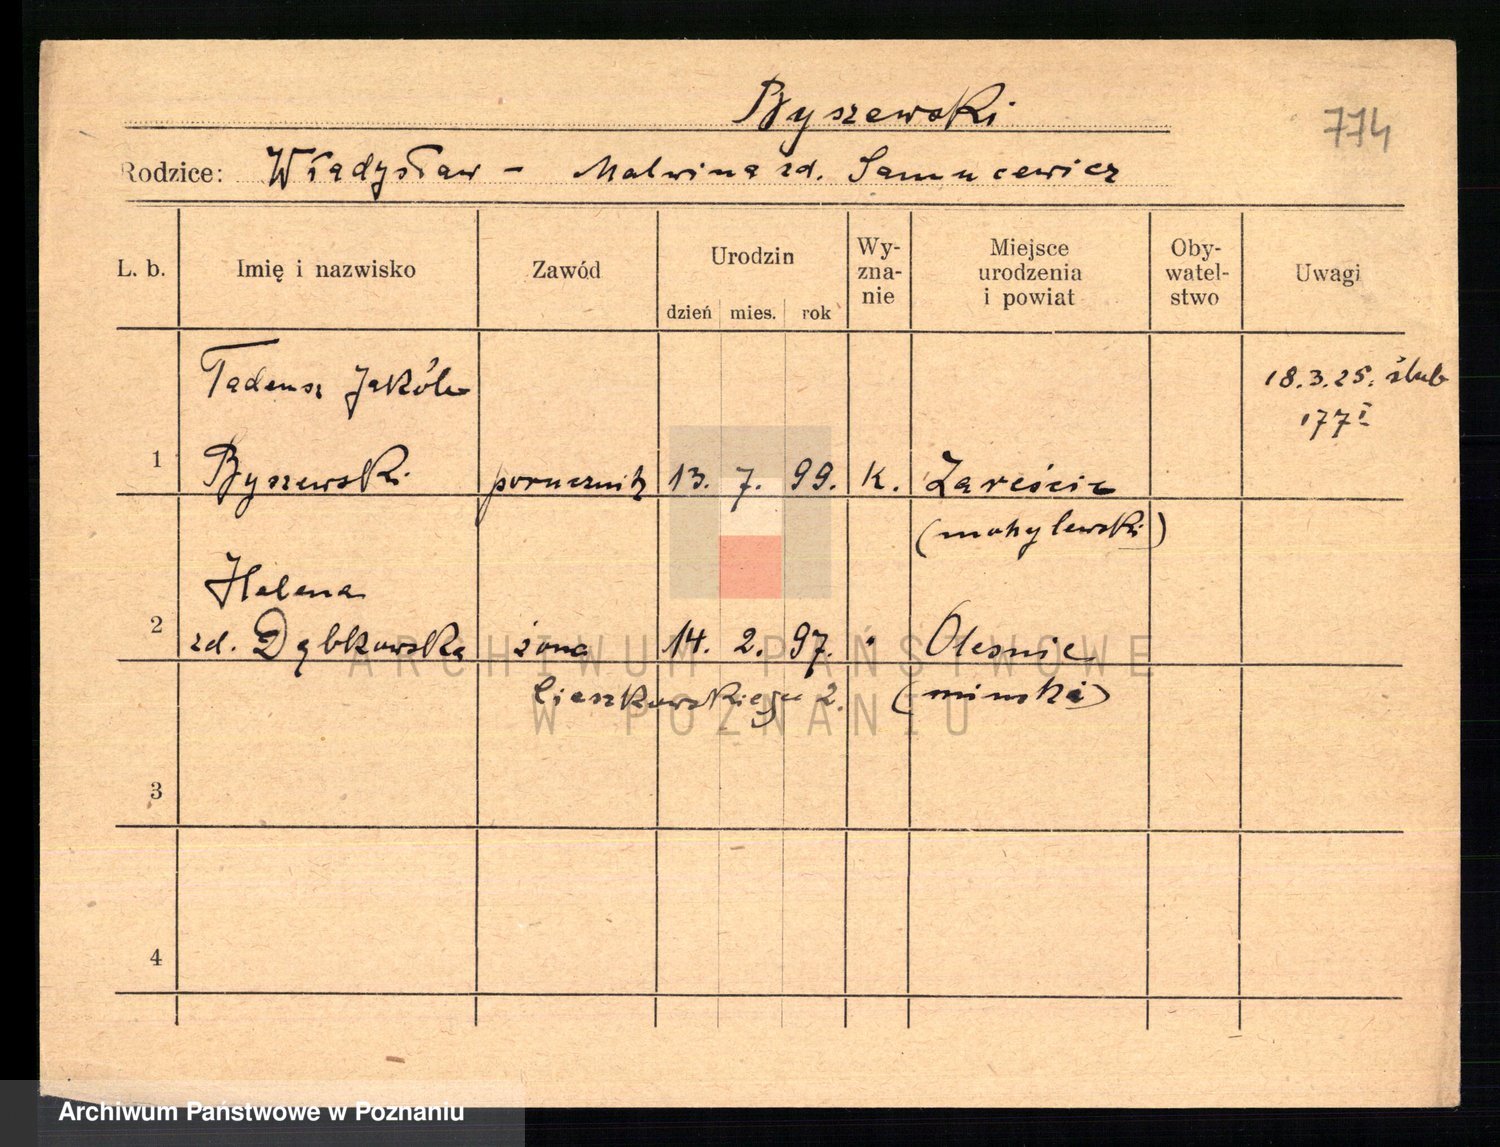 Byszewski
774
Rodzice: Władysław - Malwina zd. Samucewicz
L. b. Imię i nazwisko Zawód Urodzin dzień mies. rok Wy-zna-nie Miejsce urodzenia i powiat Oby-watel-stwo Uwagi
Tadeusz Jakób 18.3.25. ślub
177 I
1 Byszewski porucznik 13. 7. 99. K. Zarście
(mohylewski)
Helena
2 zd. Dąbkowska żona 14. 2. 97. " Olesnie
Cieszkowskiego 2. (minski)
3
4
ARCHIWUM PAŃSTWOWE
W POZNANIU
Archiwum Państwowe w Poznaniu